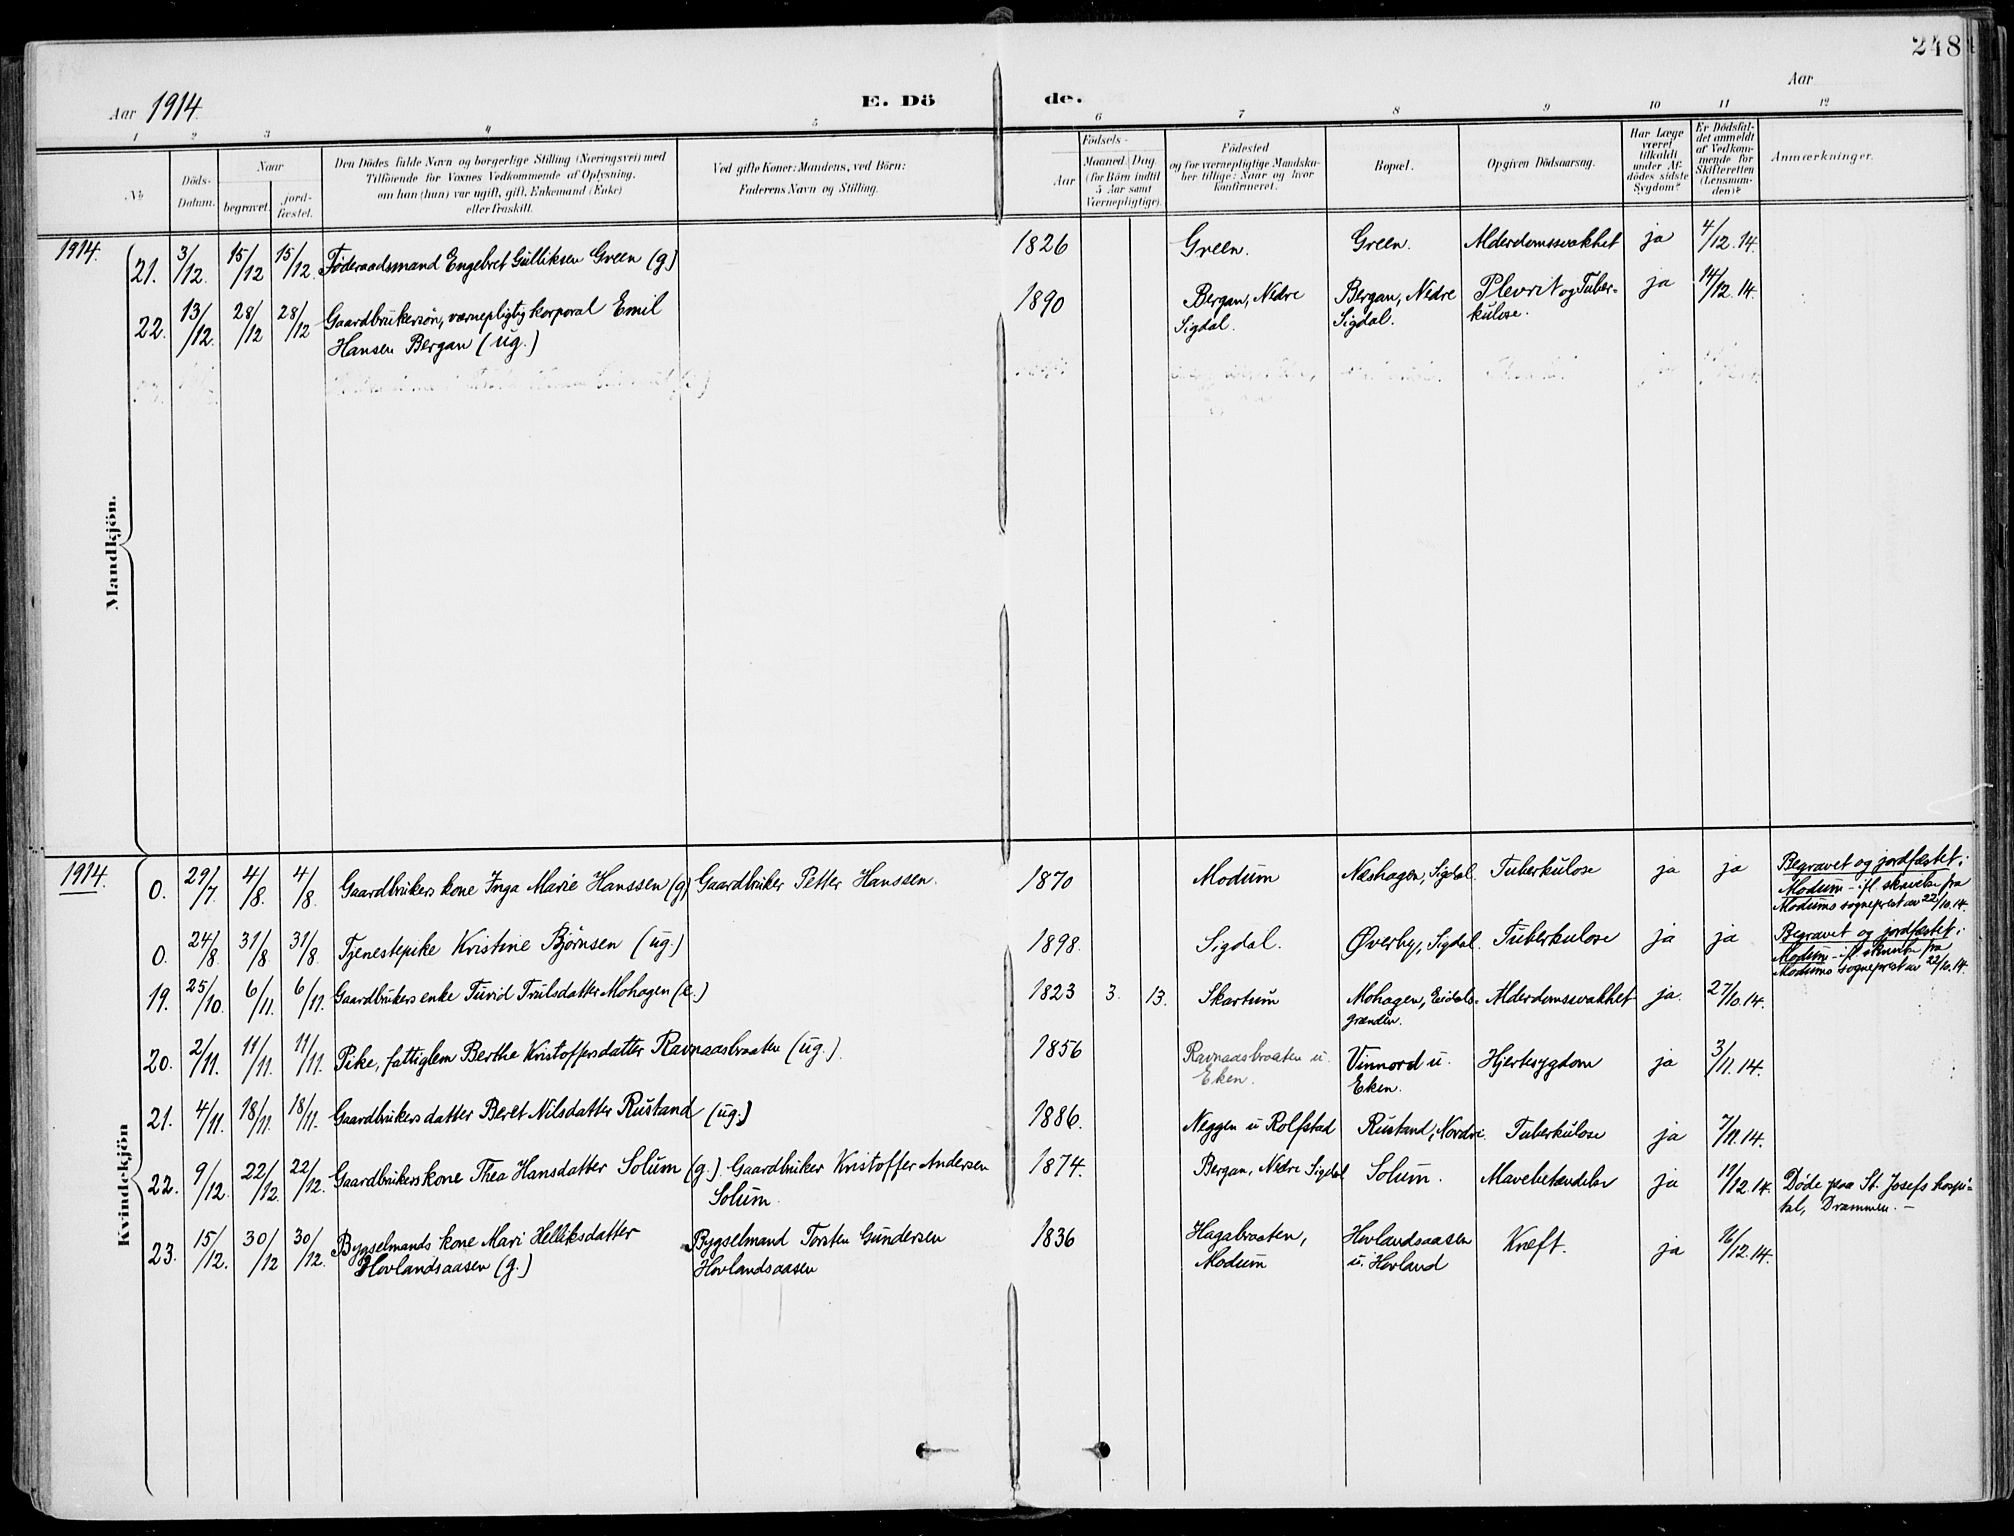 248
Aar 1914. E. Dö de. Aar
1 2 3 4 5 6 7 8 9 10 11 12
No
Döds-Datum.
Naar
begravet.
jord-fæstet.
Den Dödes fulde Navn og borgerlige Stilling (Næringsvei) med
Tilföiende for Voxnes Vedkommende af Oplysning,
om han (hun) var ugift, gift, Enkemand (Enke)
eller fraskilt.
Ved gifte Koner: Mandens, ved Börn:
Faderens Navn og Stilling.
Födsels-
Aar
Maaned Dag
(for Börn indtil
5 Aar samt
Værnepligtige).
Födested
og for værnepligtige Mandska-
ber tillige: Naar og hvor
konfirmeret.
Bopæl.
Opgiven Dödsaarsag.
Har Læge
været
tilkaldt
under Af-
dödes sidste
Sygdom?
Er Dödsfal-
det anmeldt
af Vedkom-
mende for
Skifteretten
(Lensman-
den)?
Anmærkninger.
Mandkjön.
1914.
21. 3/12. 15/12 15/12. Föderaadsmand Engebret Gulliksen Green (g) 1826 Green. Green. Alderdomssvakhet ja 4/12.14.
22. 13/12. 28/12 28/12 Gaardbrukersøn, værnepligtig korporal Emil 1890 Bergan, Nedre Bergan, Nedre Plevrit og Tuber- ja 14/12.14.
Hansen Bergan (ug.) Sigdal. Sigdal. kulose.
Kvindekjön
1914.
0. 29/7. 4/8. 4/8. Gaardbrukers kone Inga Marie Hanssen (g) Gaardbruker Petter Hanssen. 1870 Modum Næshagen, Sigdal. Tuberkulose ja ja Begravet og jordfæstet i
Modum – ifl. skrivelse fra
Modums sogneprest av 22/10.14.
0. 24/8. 31/8 31/8. Tjenestepike Kristine Bjørnsen (ug.) 1898. Sigdal. Øverby, Sigdal. Tuberkulose ja ja Begravet og jordfæstet i
Modum – ifl. skrivelse fra
Modums sogneprest av 22/10.14.
19. 25/10. 6/11. 6/11. Gaardbrukers enke Turid Trulsdatter Mohagen (e.) 1823 3. 13. Skartum Mohagen, Eidals- Alderdomssvakhet ja. 27/10.14.
grænden.
20. 2/11. 11/11. 11/11. Pike, fattiglem Berthe Kristoffersdatter Ravnaasbraaten (ug.). 1856 Ravnaasbraaten u. Vinnord u. Hjertesygdom ja 3/11.14.
Eken. Eken.
21. 4/11. 18/11. 18/11. Gaardbrukers datter Beret Nilsdatter Rustand (ug.) 1886. Neggen u Rolfstad Rustand, Nordre. Tuberkulose ja 7/11.14.
22. 9/12. 22/12. 22/12. Gaardbrukers kone Thea Hansdatter Solum (g.) Gaardbruker Kristoffer Andersen 1874. Bergan, Nedre Sigdal Solum. Mavebetændelse ja 19/12.14. Døde paa St. Josefs hospi-
Solum. tal, Drammen. –
23. 15/12. 30/12 30/12. Bygselmands kone Mari Helliksdatter Bygselmand Torsten Gundersen 1836 Hagabraaten, Hovlandsaasen Kræft. ja 16/12.14.
Hovlandsaasen (g.) Hovlandsaasen Modum u. Hovland